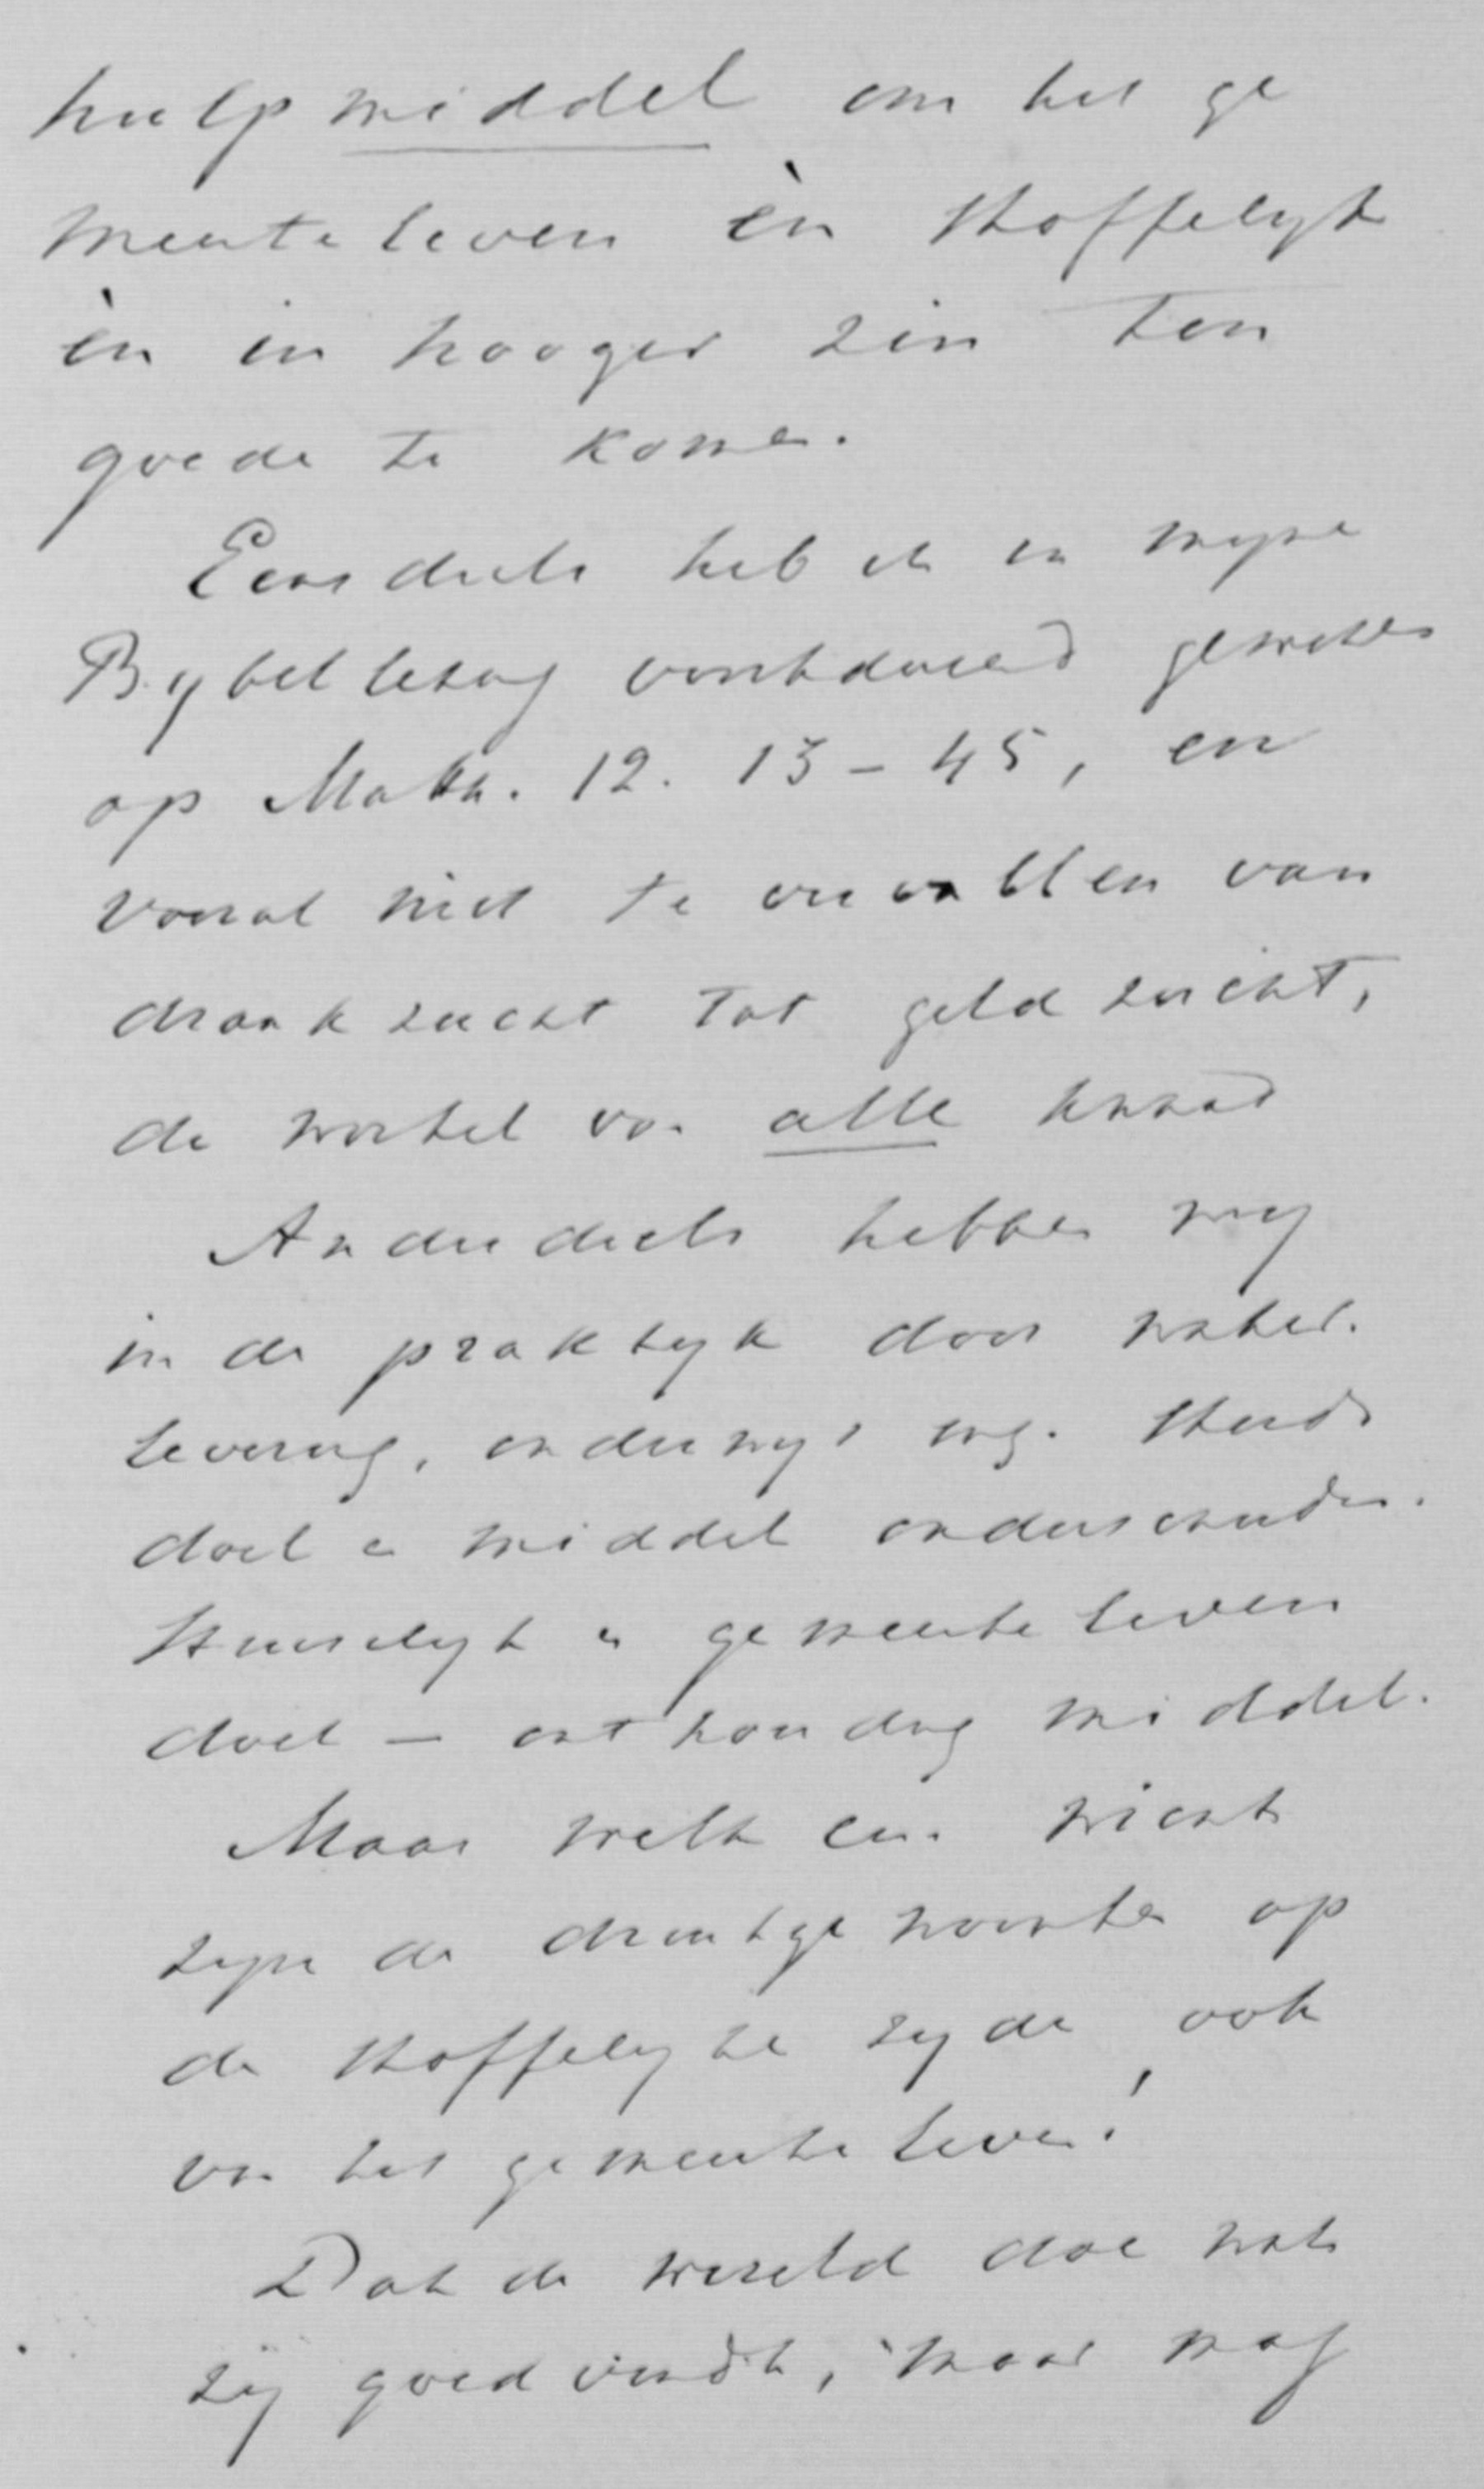 hulpmiddel om het ge
meenteleven èn stoffelyk
èn in hooger zin ten
goede te komen.
Eensdeels heb ik in myne
Bybellezing voortdurend gewezen
op Matth. 12. 13-45, en
vooral niet te vervallen van
drankzucht tot geldzucht,
de wortel van alle kwaad
Anderdeels hebben wy
in de praktyk door water.
levering, onderwys enz. steeds
doel en middel onderscheiden.
Huiselyk en gemeenteleven
doel — onthouding middel.
Maar welk een winst
zyn de drankgewoonten op
de stoffelyke zyde, ook
van het gemeenteleven!
Dat de wereld doe wat
zij goedvindt, maar mag